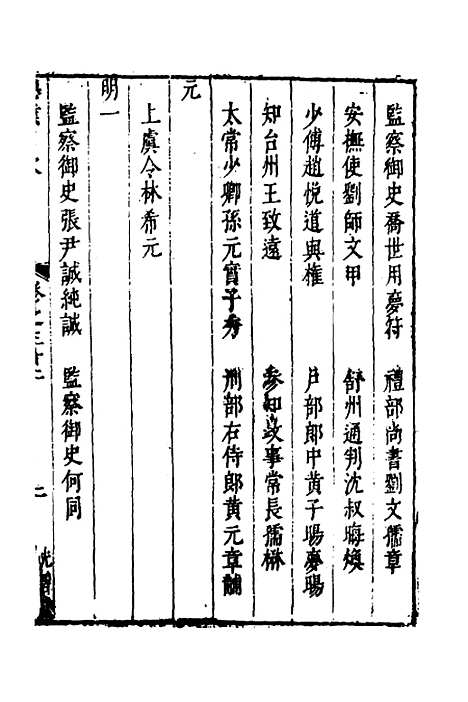 監察御史喬世用夢符　禮部尚書劉文孺章
安撫使劉師文甲　舒州通判沈叔晦煥
少傅趙悅道與權　戶部郎中黃子場夢暘
知台州王致遠　參知政事常長孺楙
太常少卿孫元實子秀　刑部右侍郎黃元章黼
元
上虞令林希元
明一
監察御史張尹誠純誠　監察御史何同
卷之三十二